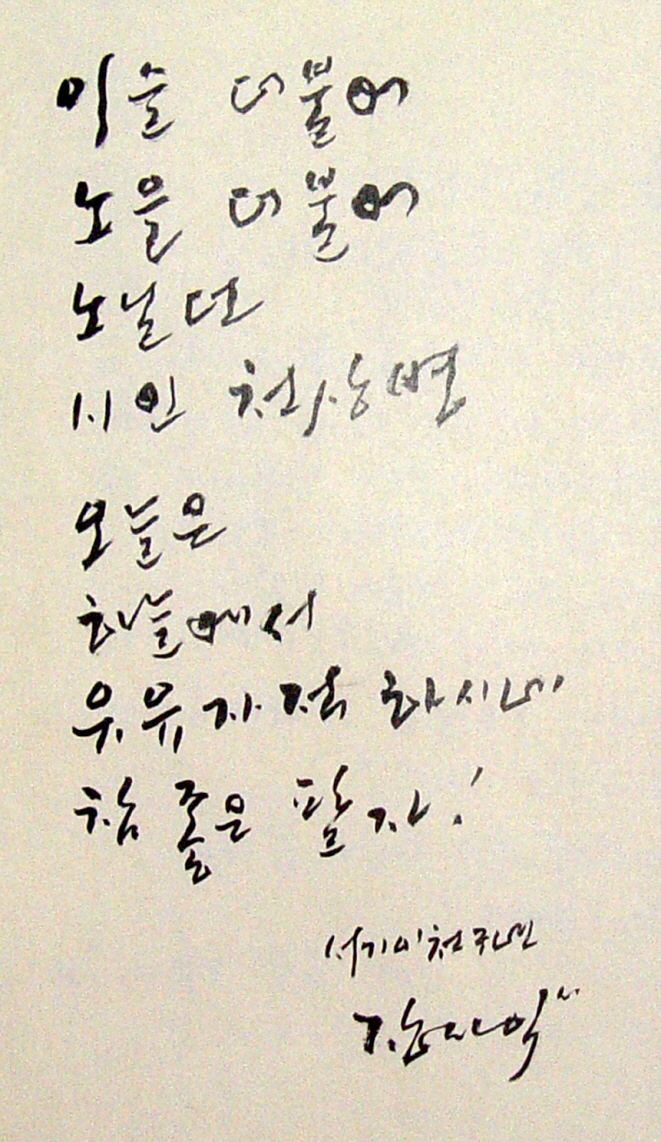 이슬 더불어
노을 더불어
노닐던
시인 천상병
오늘은
하늘에서
유유자적 하시네
참 좋은 팔자!
서기이천구년
장사익